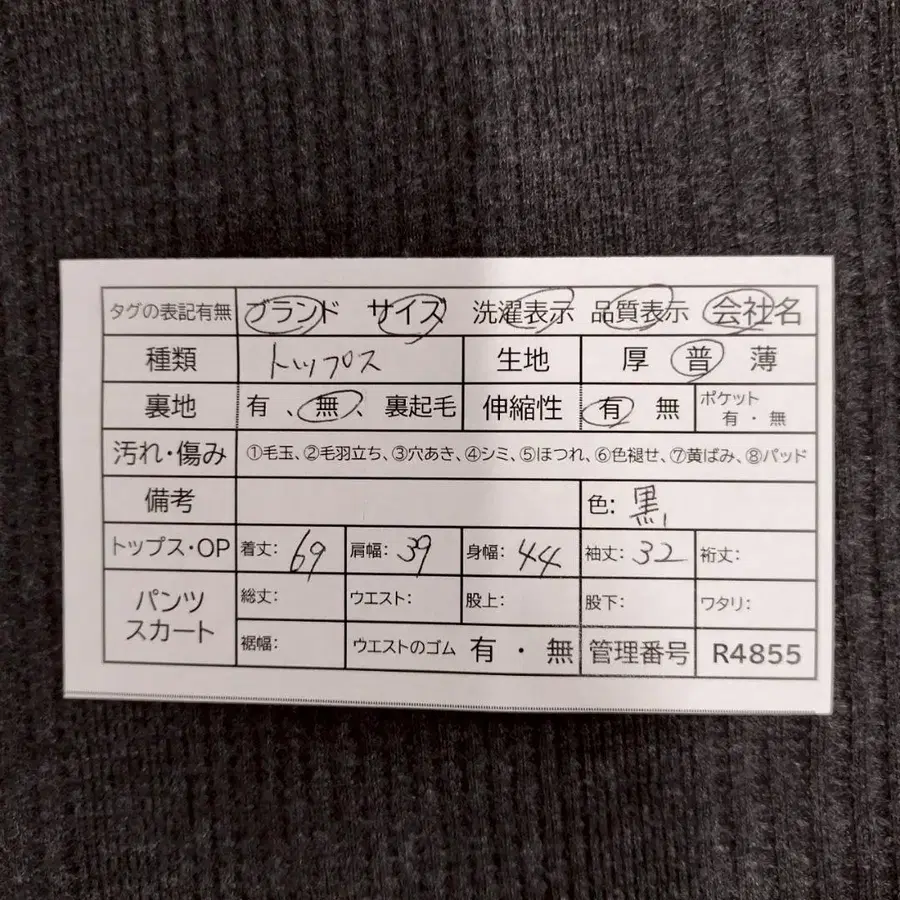 タグの表記有無 ブランド サイズ 洗濯表示 品質表示 会社名
種類 トップス 生地 厚 普 薄
裏地 有、無、裏起毛 伸縮性 有 無 ポケット 有・無
汚れ・傷み ①毛玉、②毛羽立ち、③穴あき、④シミ、⑤ほつれ、⑥色褪せ、⑦黄ばみ、⑧パッド
備考 色: 黒
トップス・OP 着丈: 69 肩幅: 39 身幅: 44 袖丈: 32 裄丈:
パンツ スカート 総丈: ウエスト: 股上: 股下: ワタリ:
裾幅: ウエストのゴム 有・無 管理番号 R4855